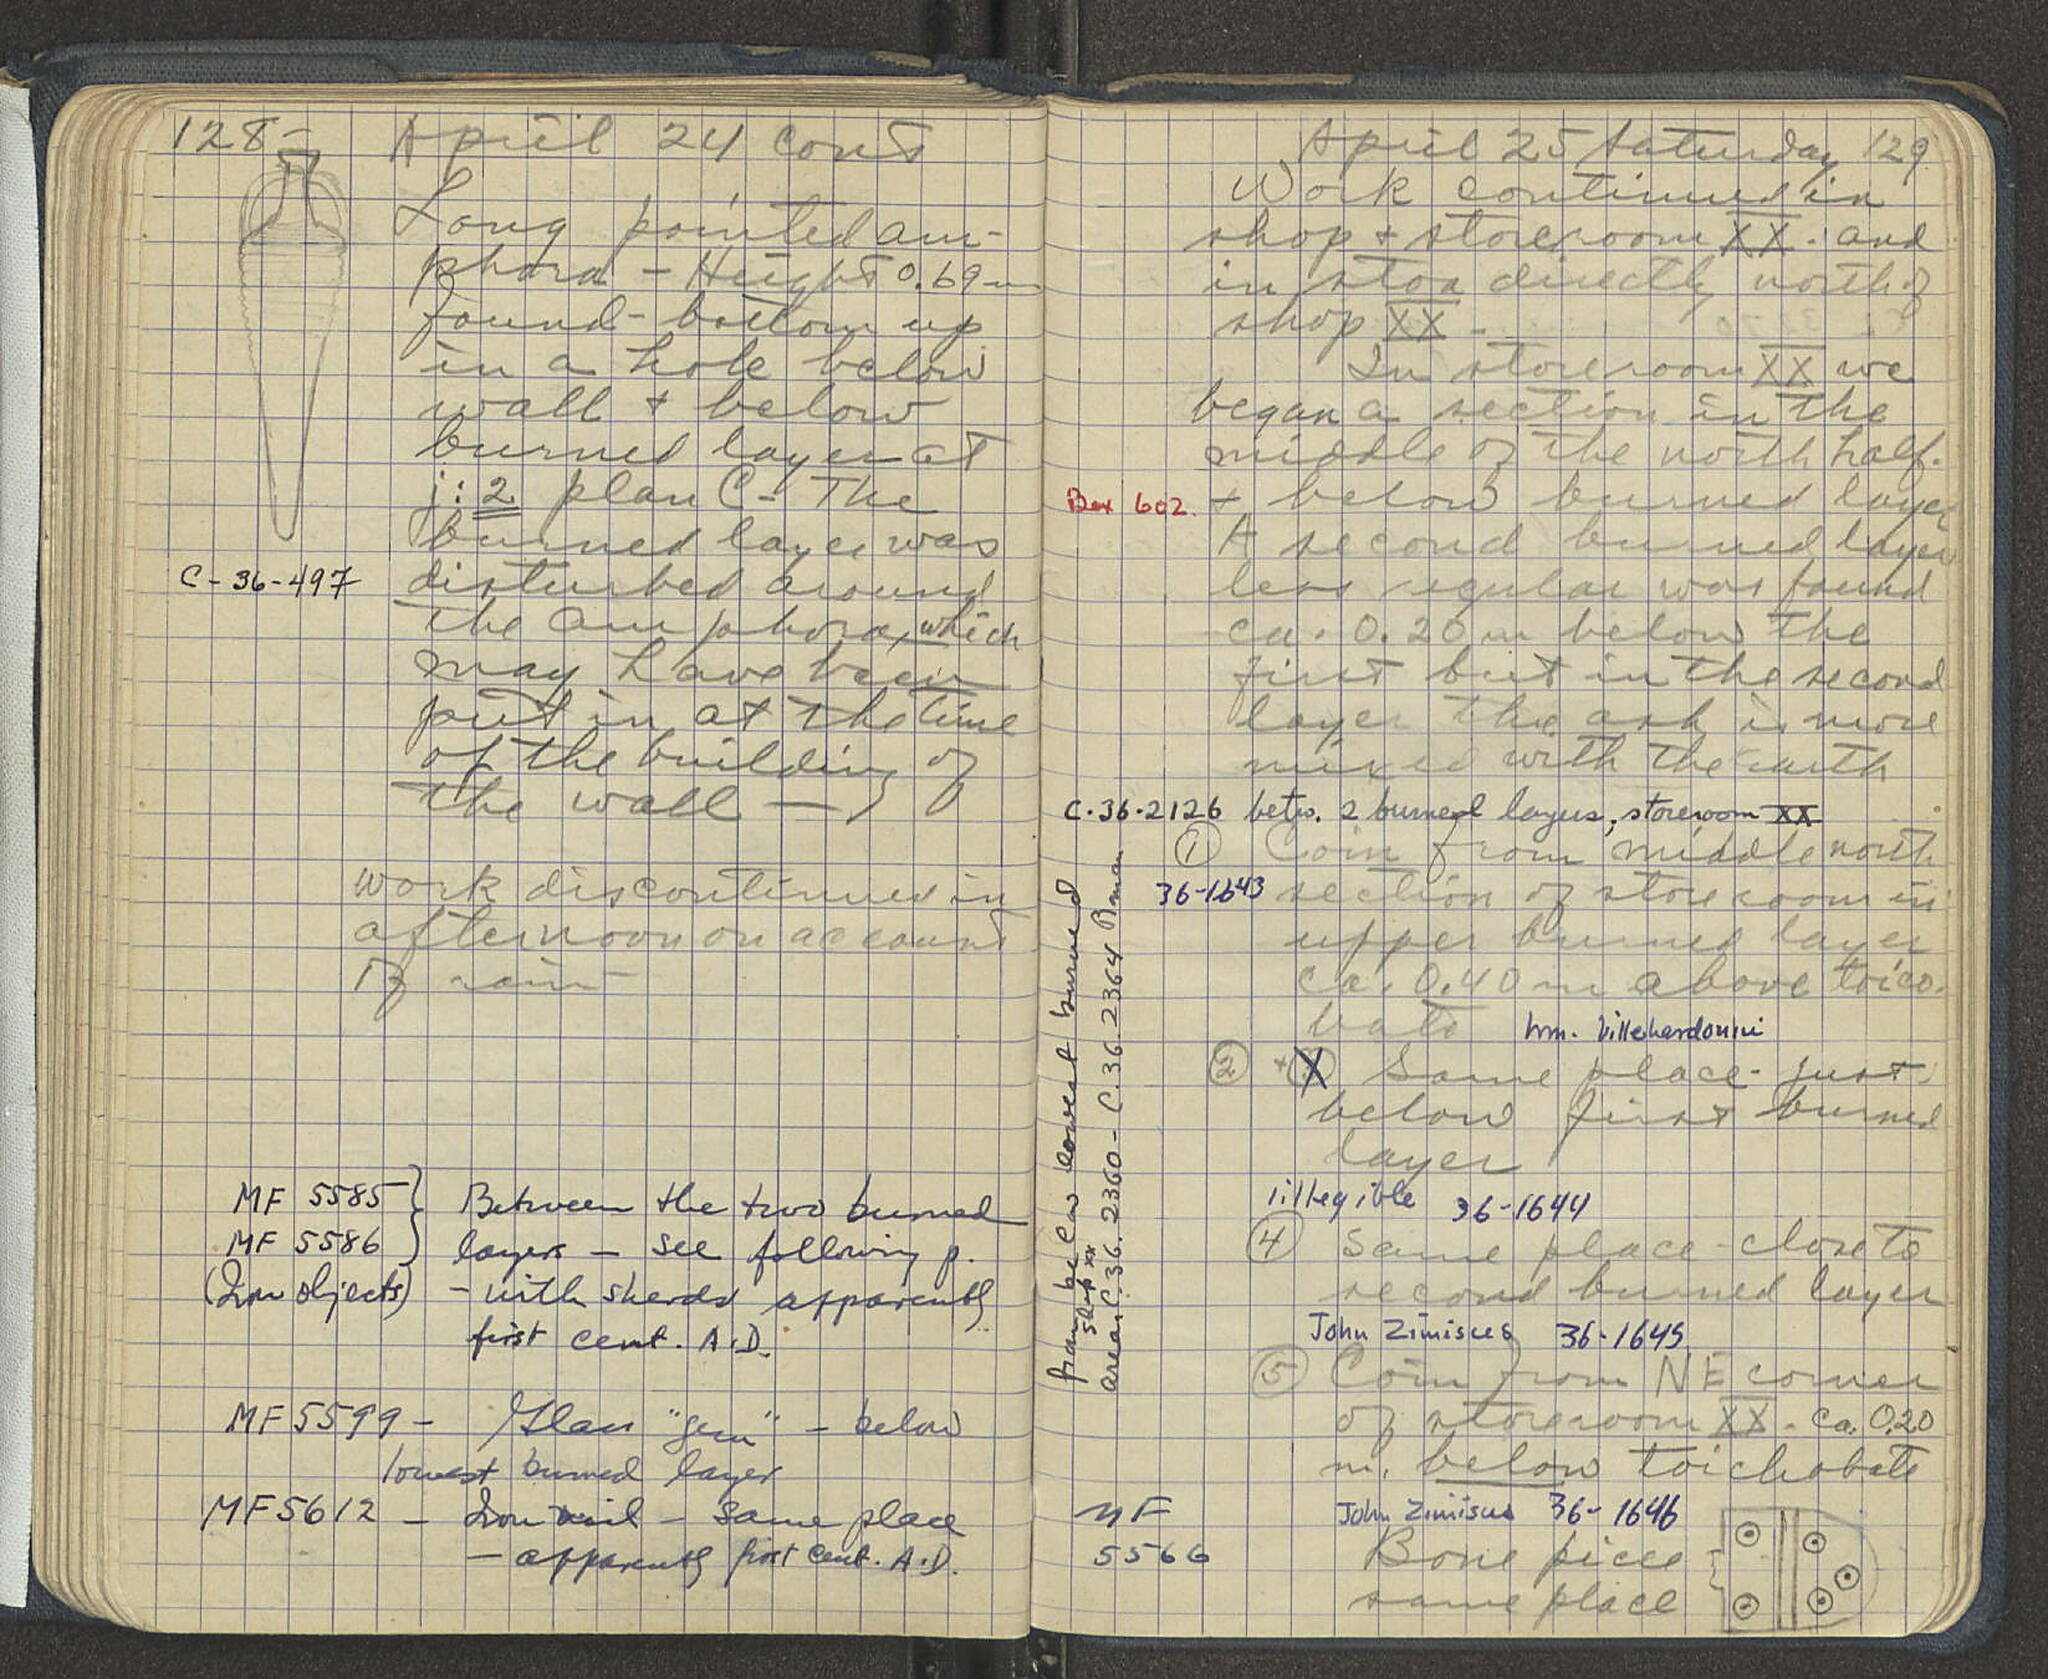 128 April 24 cont
Long pointed am-
phora - Height 0.69 m
found - bottom up
in a hole below
wall + below
burned layer at
j:2 plan C - The
burned layer was
C-36-497 disturbed around
the amphora, which
may have been
put in at the time
of the building of
the wall -
work discontinued in
afternoon on account
of rain
MF 5585 } Between the two burned
MF 5586 } layers - see following p.
(Iron objects) - with sherds apparently
first cent. A.D.
MF 5599 - Glass "gem" - below
lowest burned layer
MF 5612 - Iron nail - same place
- apparently first cent. A.D.
April 25 Saturday 129
Work continued in
shop + storeroom XX. and
in stoa directly north of
shop XX -
In storeroom XX we
began a section in the
middle of the north half.
Box 602. + below burned layer
A second burned layer
less regular was found
ca. 0.20 m below the
first but in the second
layer the ash is more
mixed with the earth
C.36.2126 betw. 2 burned layers, storeroom XX
① Coin from middle north
36-1643 section of storeroom in
upper burned layer
ca. 0.40 m above toico-
bate Wm. Villehardouin
② + X Same place - just
below first burned
layer
illegible 36-1644
④ Same place - close to
second burned layer
John Zimisces 36-1645
⑤ Coin from NE corner
of storeroom XX - ca. 0.20
m. below toichobate
John Zimisces 36-1646
MF Bone piece
5566 same place
from below lowest burned
shop XX
area C.36.2360 - C.36.2364 Roman